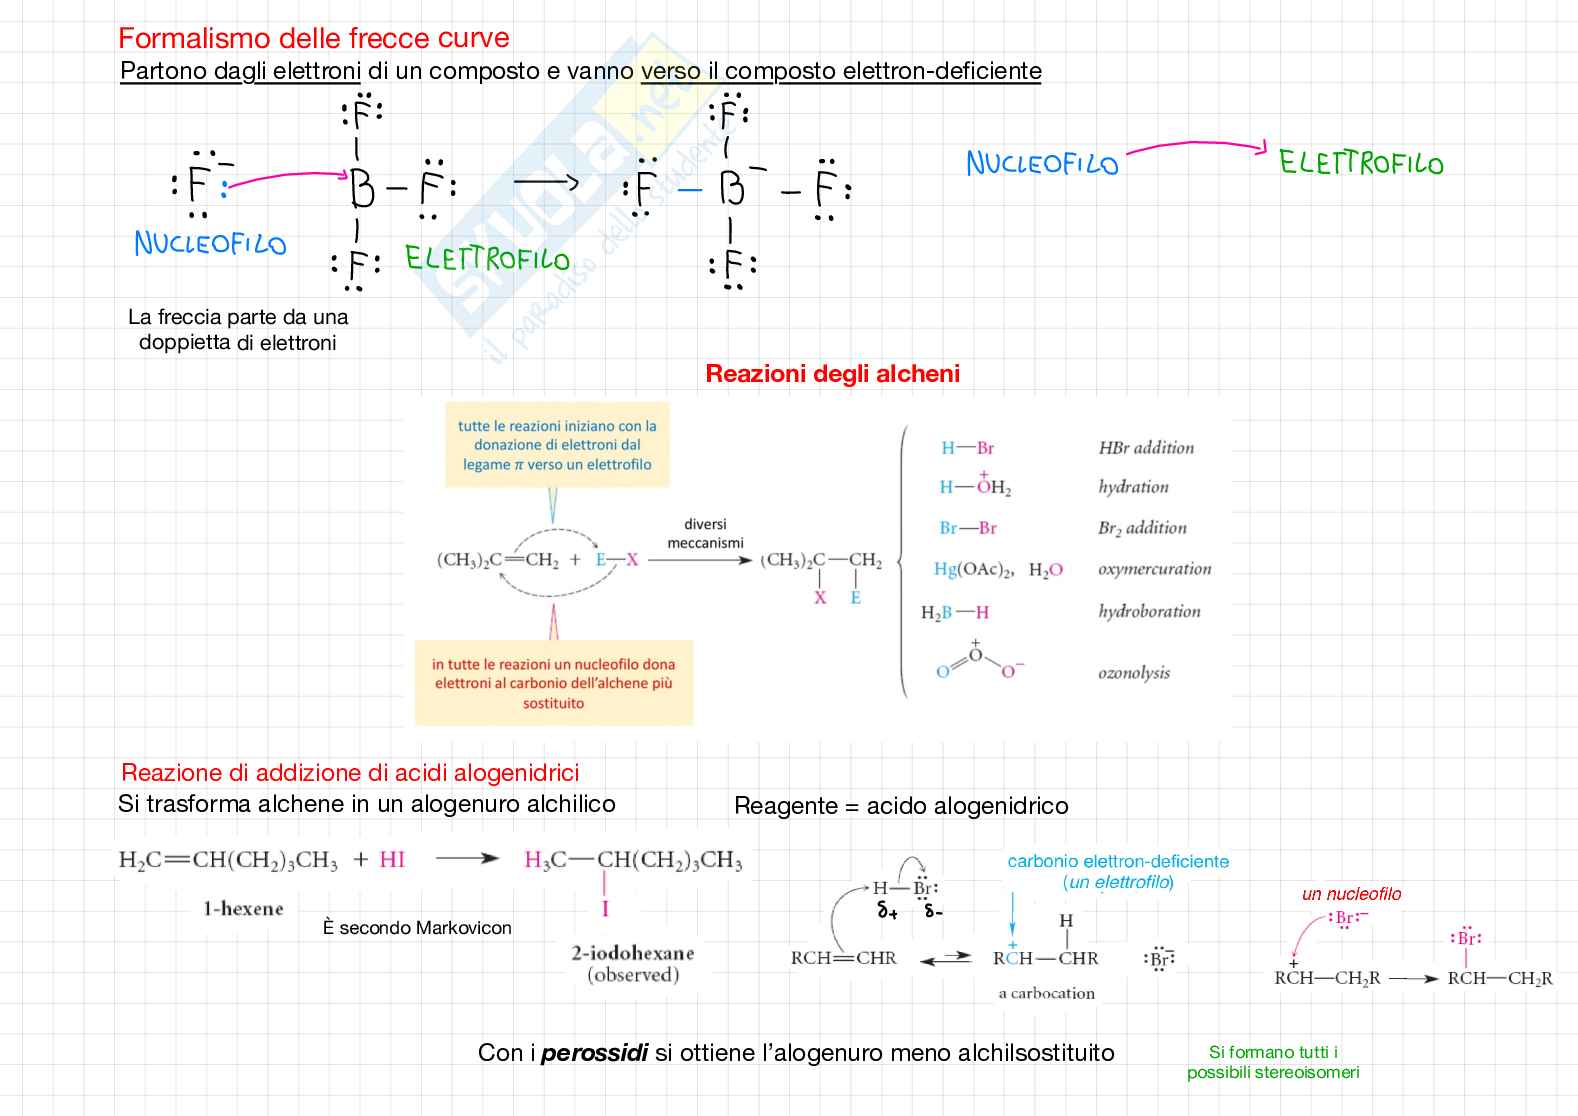 Formalismo delle frecce curve
Partono dagli elettroni di un composto e vanno verso il composto elettron-deficiente
:F:
:F:
:F:⁻
B – F:
:F – B⁻ – F:
NUCLEOFILO
ELETTROFILO
:F:
:F:
NUCLEOFILO
ELETTROFILO
SKUOLA.net
il paradiso dello studente
La freccia parte da una
doppietta di elettroni
Reazioni degli alcheni
tutte le reazioni iniziano con la
donazione di elettroni dal
legame π verso un elettrofilo
(CH₃)₂C=CH₂ + E—X
diversi
meccanismi
(CH₃)₂C—CH₂
X E
in tutte le reazioni un nucleofilo dona
elettroni al carbonio dell'alchene più
sostituito
H—Br HBr addition
H—O⁺H₂ hydration
Br—Br Br₂ addition
Hg(OAc)₂, H₂O oxymercuration
H₂B—H hydroboration
O=O⁺—O⁻ ozonolysis
Reazione di addizione di acidi alogenidrici
Si trasforma alchene in un alogenuro alchilico
Reagente = acido alogenidrico
H₂C=CH(CH₂)₃CH₃ + HI → H₃C—CH(CH₂)₃CH₃
I
1-hexene
È secondo Markovicon
2-iodohexane
(observed)
H—Br:
δ+ δ-
RCH=CHR
carbonio elettron-deficiente
(un elettrofilo)
H
+
RCH—CHR :Br:⁻
a carbocation
un nucleofilo
:Br:⁻
+
RCH—CH₂R
:Br:
RCH—CH₂R
Con i perossidi si ottiene l'alogenuro meno alchilsostituito
Si formano tutti i
possibili stereoisomeri